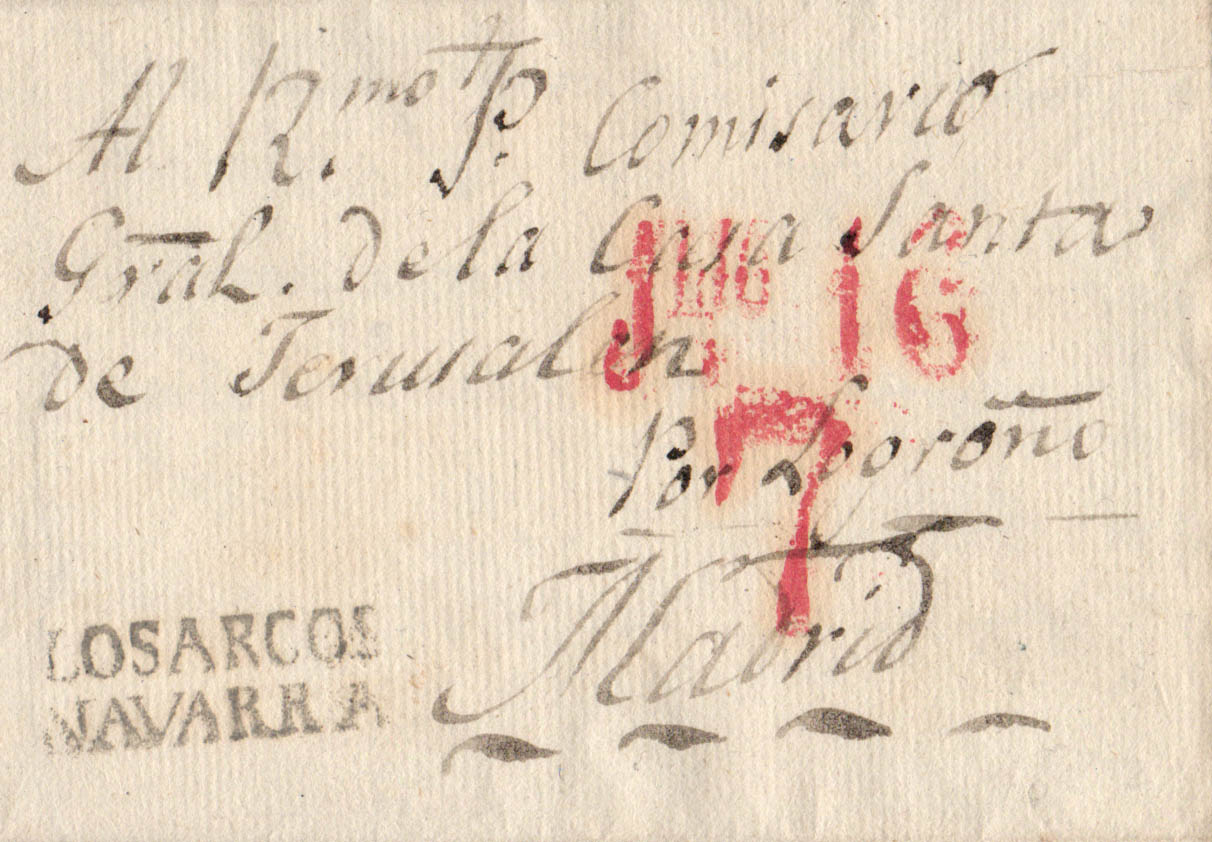 Al R.mo P. Comisario
Gral. de la Casa Santa
de Jerusalen
Jnio 16
Por Logroño
7
Madrid
LOS ARCOS
NAVARRA